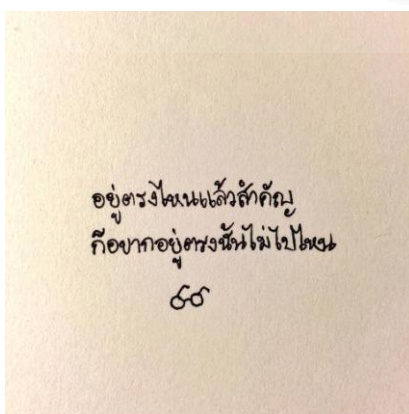 อยู่ตรงไหนแล้วสำคัญ
ก็อยากอยู่ตรงนั้นไม่ไปไหน